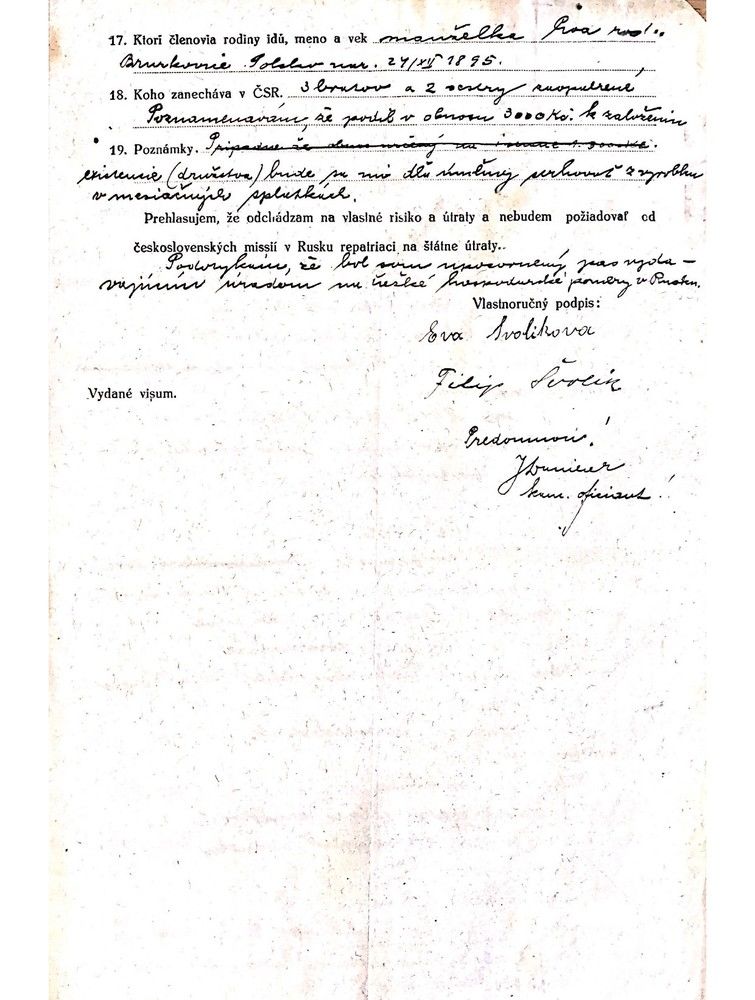 17. Ktorí členovia rodiny idú, meno a vek manželka Eva rod.
nar. 24/XII 1895.
18. Koho zanecháva v ČSR. 3 bratov a 2 sestry zaopatrené,
Poznamenávam, že podiel v obnosu 3000 Kč. k založeniu
19. Poznámky. Prípadne že
existencie (družstva) bude sa mi z výrobku
v mesiačných splátkách.
Prehlasujem, že odchádzam na vlastné risiko a útraty a nebudem požiadovať od
československých missií v Rusku repatriaci na štátne útraty..
Podotýkam, že bol som upozornený pas vydá-
vajúcim úradom na ťažké hospodárské poměry v Rusku.
Vlastnoručný podpis:
Eva Svolikova
Filip Švolík
Vydané visum.
Predomnou!
oficiant!